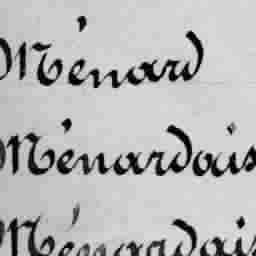 Ménard
Ménardais
Ménardais